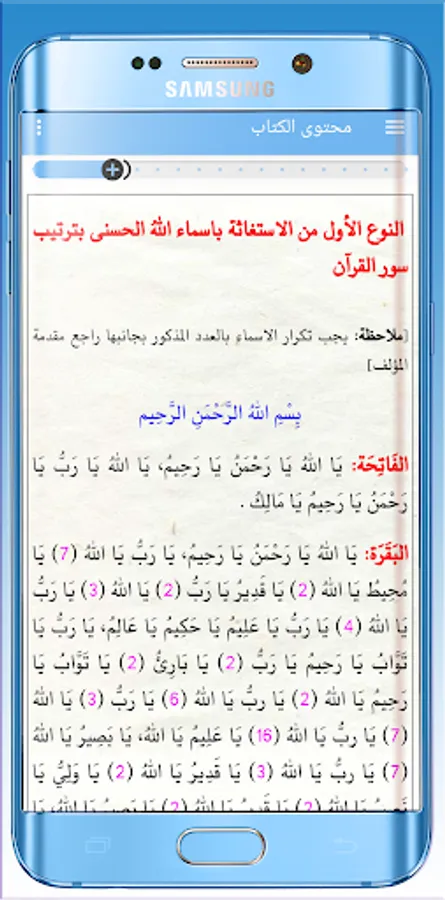 SAMSUNG
محتوى الكتاب
النوع الأول من الاستغاثة باسماء اللهُ الحسنى بترتيب
سور القرآن
[ملاحظة: يجب تكرار الاسماء بالعدد المذكور بجانبها راجع مقدمة
المؤلف]
بِسْمِ اللهُ الرَّحْمَنِ الرَّحِيم
الفَاتِحَة: يَا اللهُ يَا رَحْمَنُ يَا رَحِيمُ، يَا اللهُ يَا رَبُّ يَا
رَحْمَنُ يَا رَحِيمُ يَا مَالِكُ .
البَقَرَة: يَا اللهُ يَا رَحْمَنُ يَا رَحِيمُ، يَا رَبُّ يَا اللهُ (7) يَا
مُحِيطُ يَا اللهُ (2) يَا قَدِيرُ يَا رَبُّ (2) يَا اللهُ (3) يَا رَبُّ
يَا اللهُ (4) يَا رَبُّ يَا عَلِيمُ يَا حَكِيمُ يَا عَالِمُ، يَا رَبُّ يَا
تَوَّابُ يَا رَحِيمُ يَا رَبُّ (2) يَا بَارِئُ (2) يَا تَوَّابُ يَا
رَحِيمُ يَا اللهُ (2) يَا ربُّ يَا اللهُ (6) يَا رَبُّ (3) يَا اللهُ
(7) يَا ربُّ يَا اللهُ (16) يَا عَلِيمُ يَا اللهُ، يَا بَصِيرُ يَا اللهُ
(7) يَا ربُّ يَا اللهُ (3) يَا قَدِيرُ يَا اللهُ (2) يَا وَلِيُّ يَا
نَصِيرُ يَا اللهُ (2) يَا قَدِيرُ يَا اللهُ (2) يَا بَصِيرُ يَا اللهُ، يَا